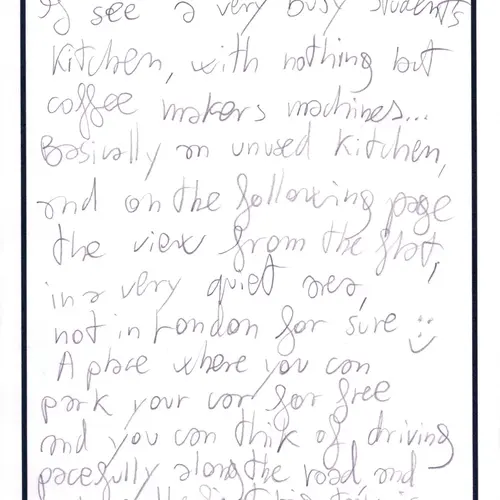 I see a very busy students
kitchen, with nothing but
coffee makers machines...
Basically an unused kitchen,
and on the following page
the view from the flat,
in a very quiet area,
not in London for sure :)
A place where you can
park your car for free
and you can thik of driving
pacefully along the road and